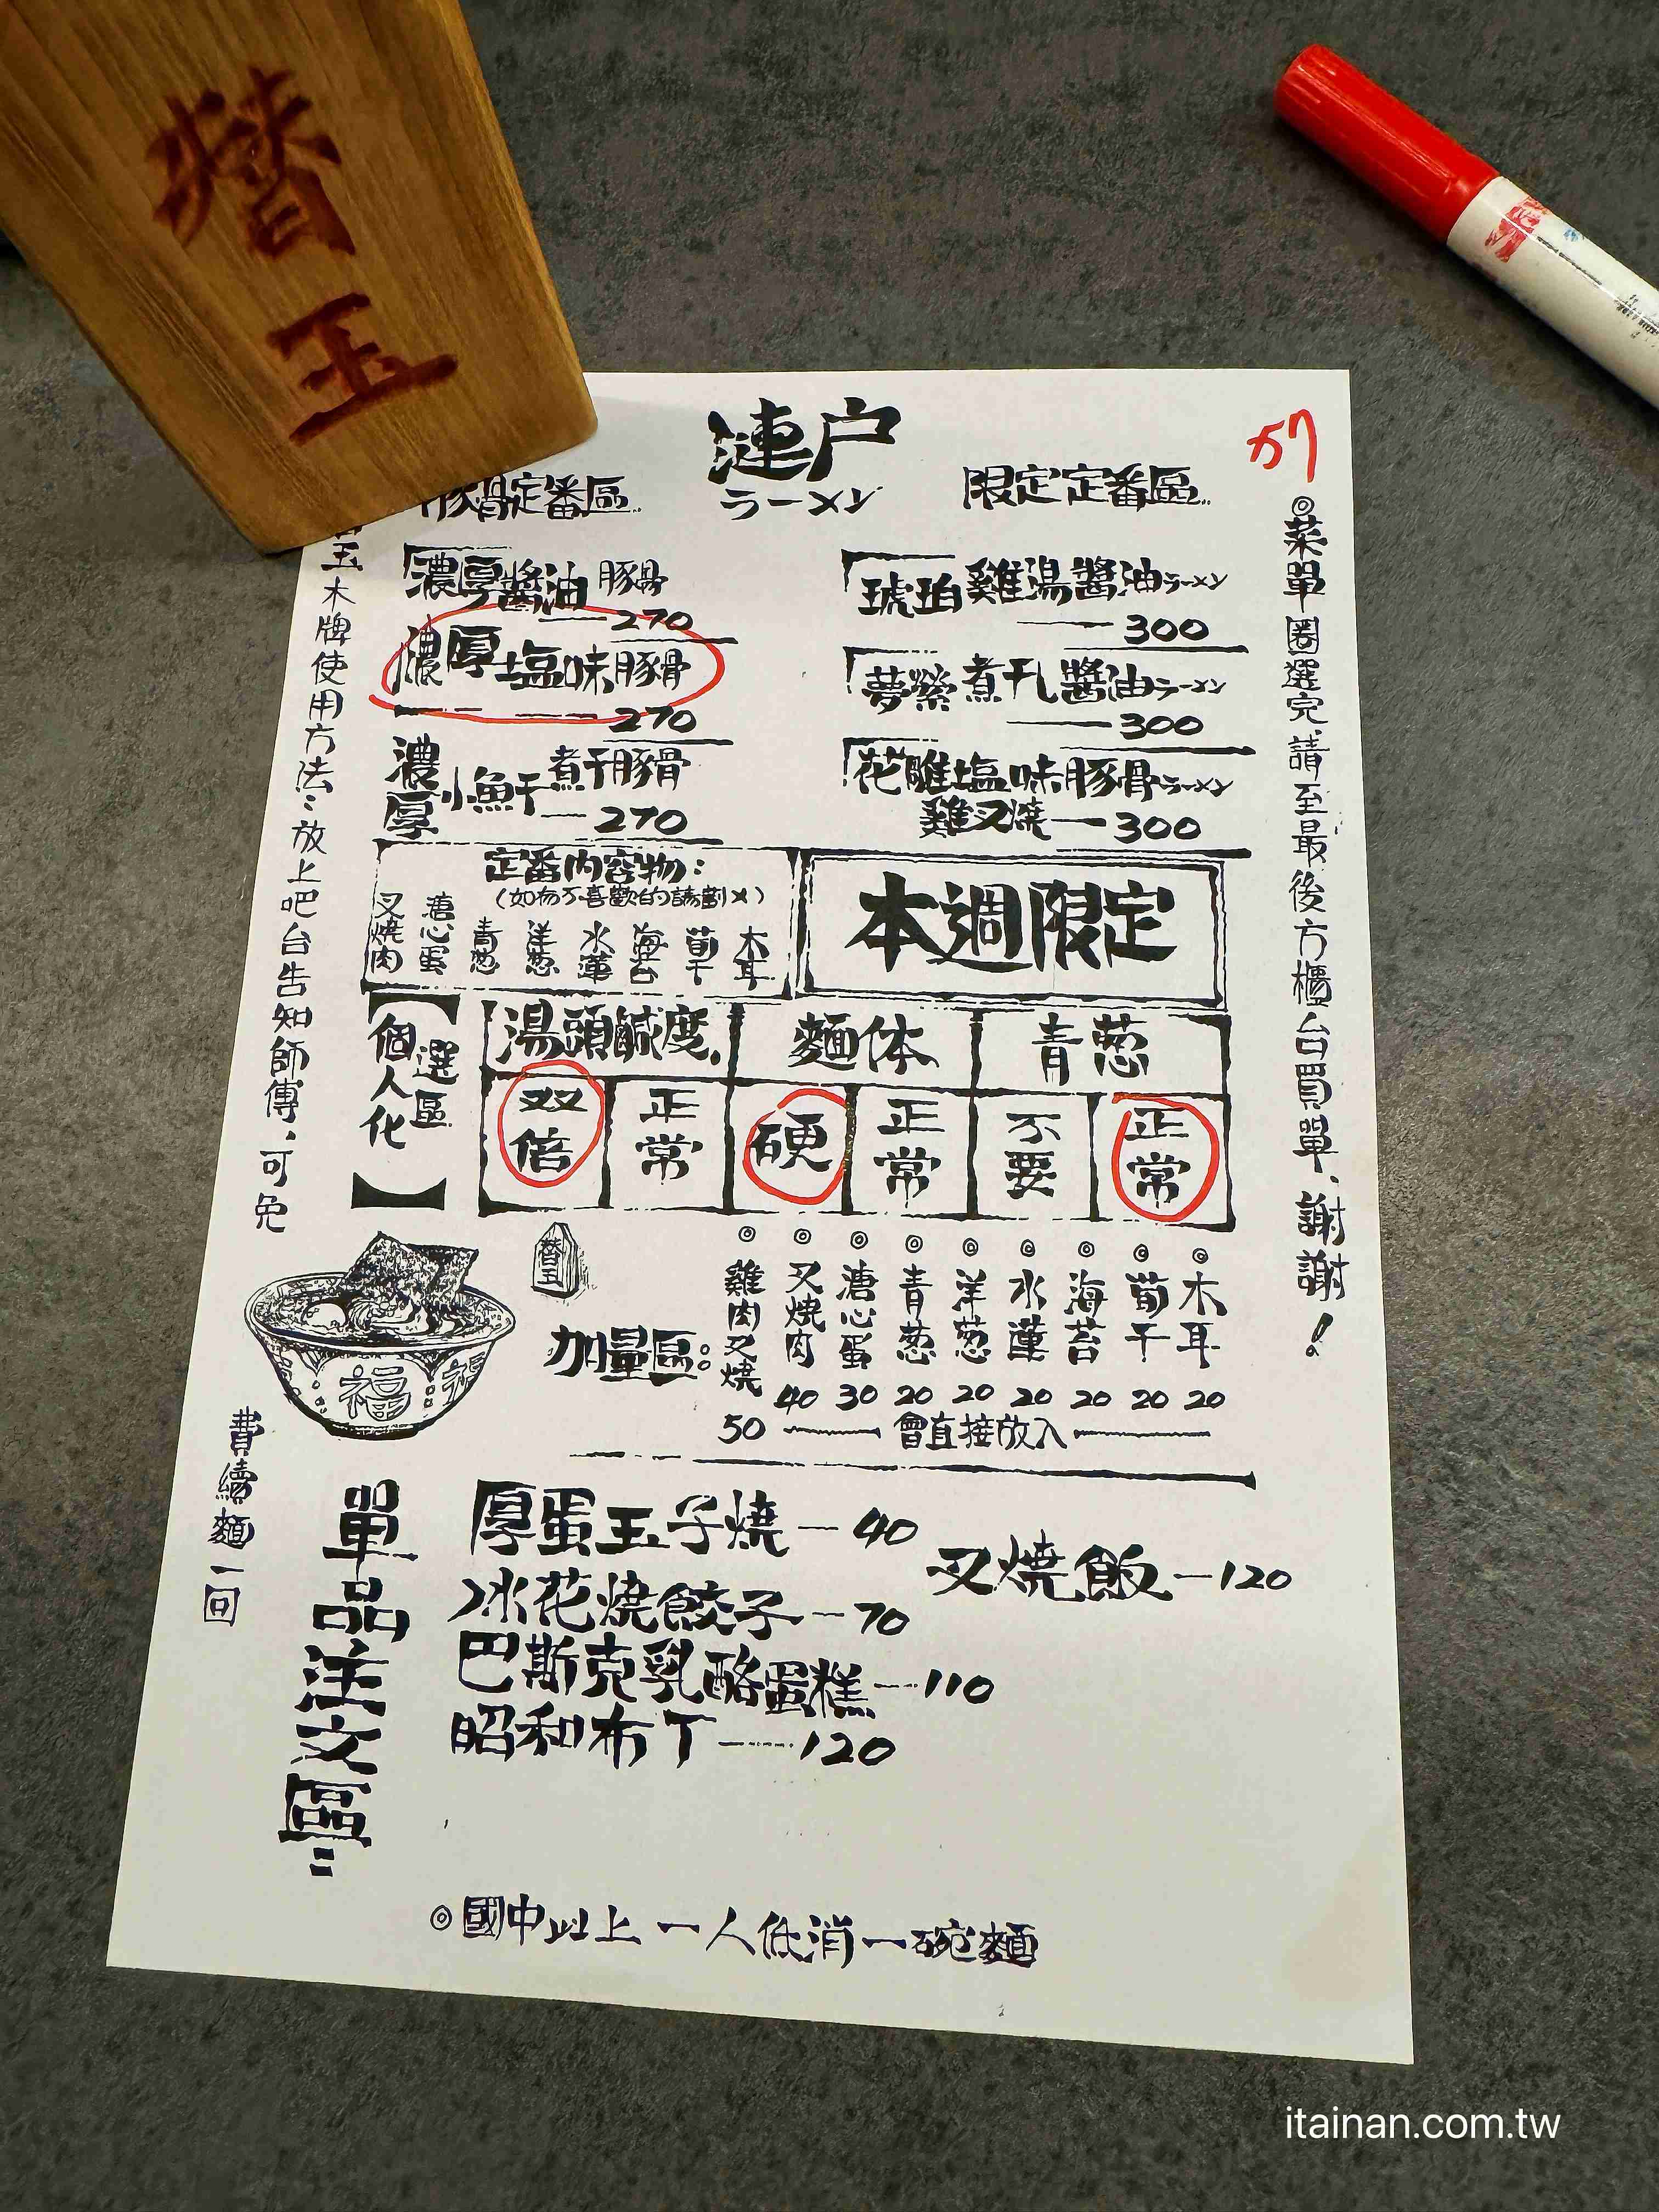 替玉
漣戶
ラーメン
57
豚骨定番區
限定定番區
濃厚醬油豚骨
270
濃厚塩味豚骨
270
濃厚小魚干煮干豚骨
270
琥珀雞湯醬油ラーメン
300
夢縈煮干醬油ラーメン
300
花雕塩味豚骨ラーメン
雞叉燒 300
定番內容物:
(如有不喜歡的請劃×)
叉燒肉
溏心蛋
青葱
洋葱
水蓮
海苔
筍干
木耳
本週限定
【個人化選區】
湯頭鹹度
麵体
青葱
双倍
正常
硬
正常
不要
正常
替玉
加量區:
◎雞肉叉燒 50
◎叉燒肉 40
◎溏心蛋 30
◎青葱 20
◎洋葱 20
◎水蓮 20
◎海苔 20
◎筍干 20
◎木耳 20
會直接放入
福
福
單品注文區:
厚蛋玉子燒—40
冰花燒餃子—70
巴斯克乳酪蛋糕—110
昭和布丁—120
叉燒飯—120
◎國中以上一人低消一碗麵
◎菜單圈選完請至最後方櫃台買單、謝謝!
玉木牌使用方法:放上吧台告知師傅、可免費續麵一回
itainan.com.tw